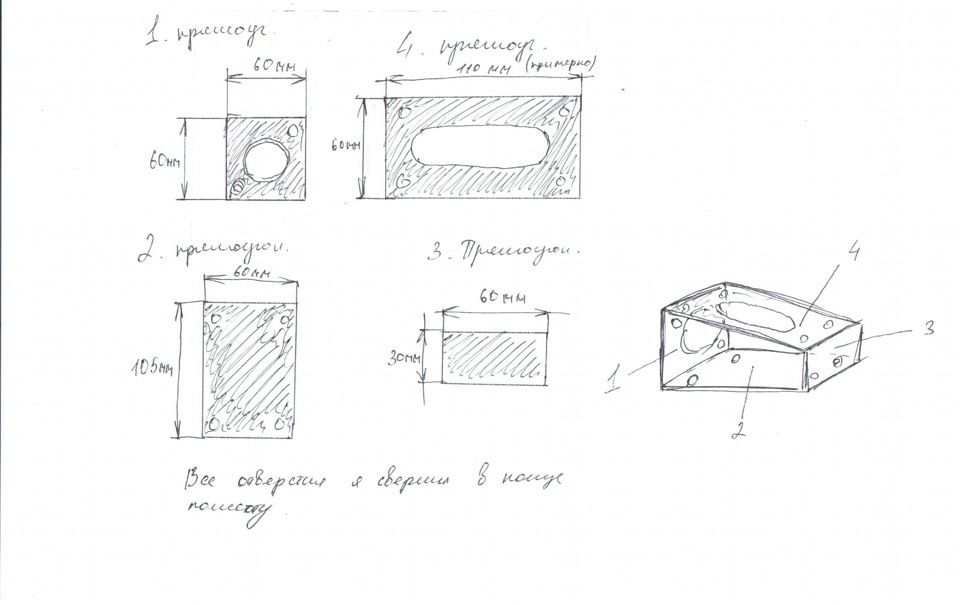 1. прямоуг.
60мм
60мм
4. прямоуг.
110 мм (примерно)
60мм
2. прямоугол.
60мм
105мм
3. Прямоугол.
60мм
30мм
4
3
1
2
Все отверстия я сверлил в конце
по месту.